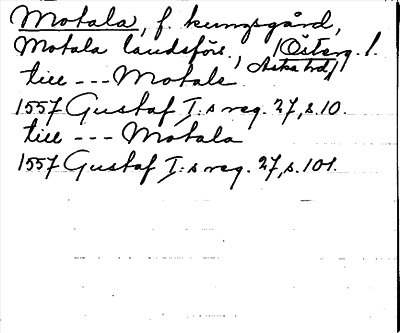 Motala, f. kungsgård,
Motala landsförs., Österg. l.
Aska hd
till --- Motale
1557 Gustaf I:s reg. 27, s. 10.
till --- Motala
1557 Gustaf I:s reg. 27, s. 101.